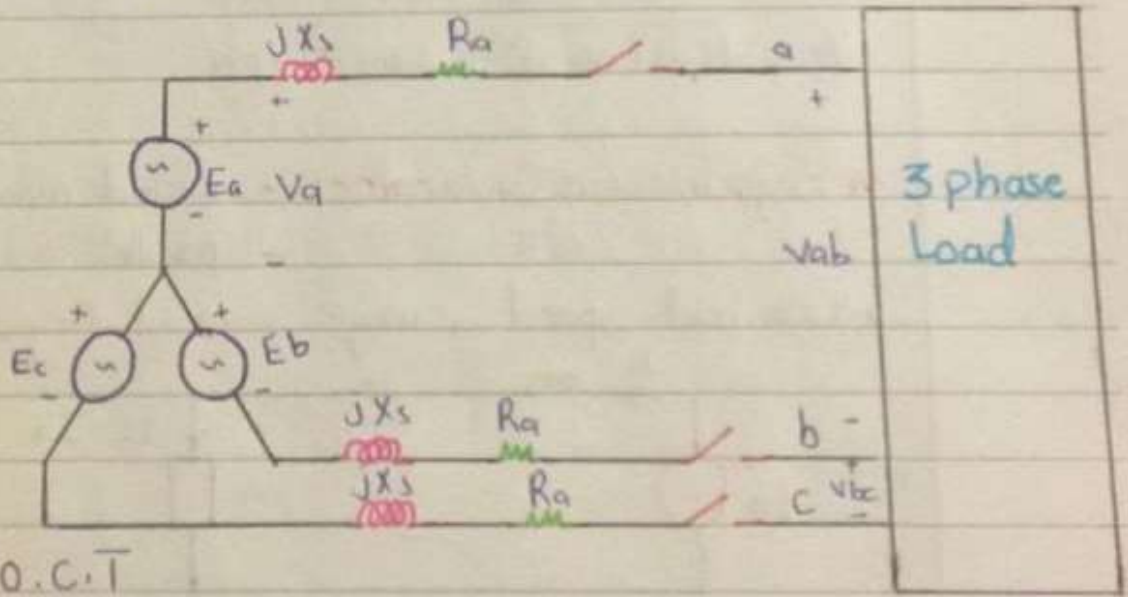 jXs Ra a
+ +
+
~ Ea Va 3 phase
-
- Vab Load
+ +
Ec ~ ~ Eb
- -
jXs Ra b -
+
jXs Ra C Vbc
-
O.C.T